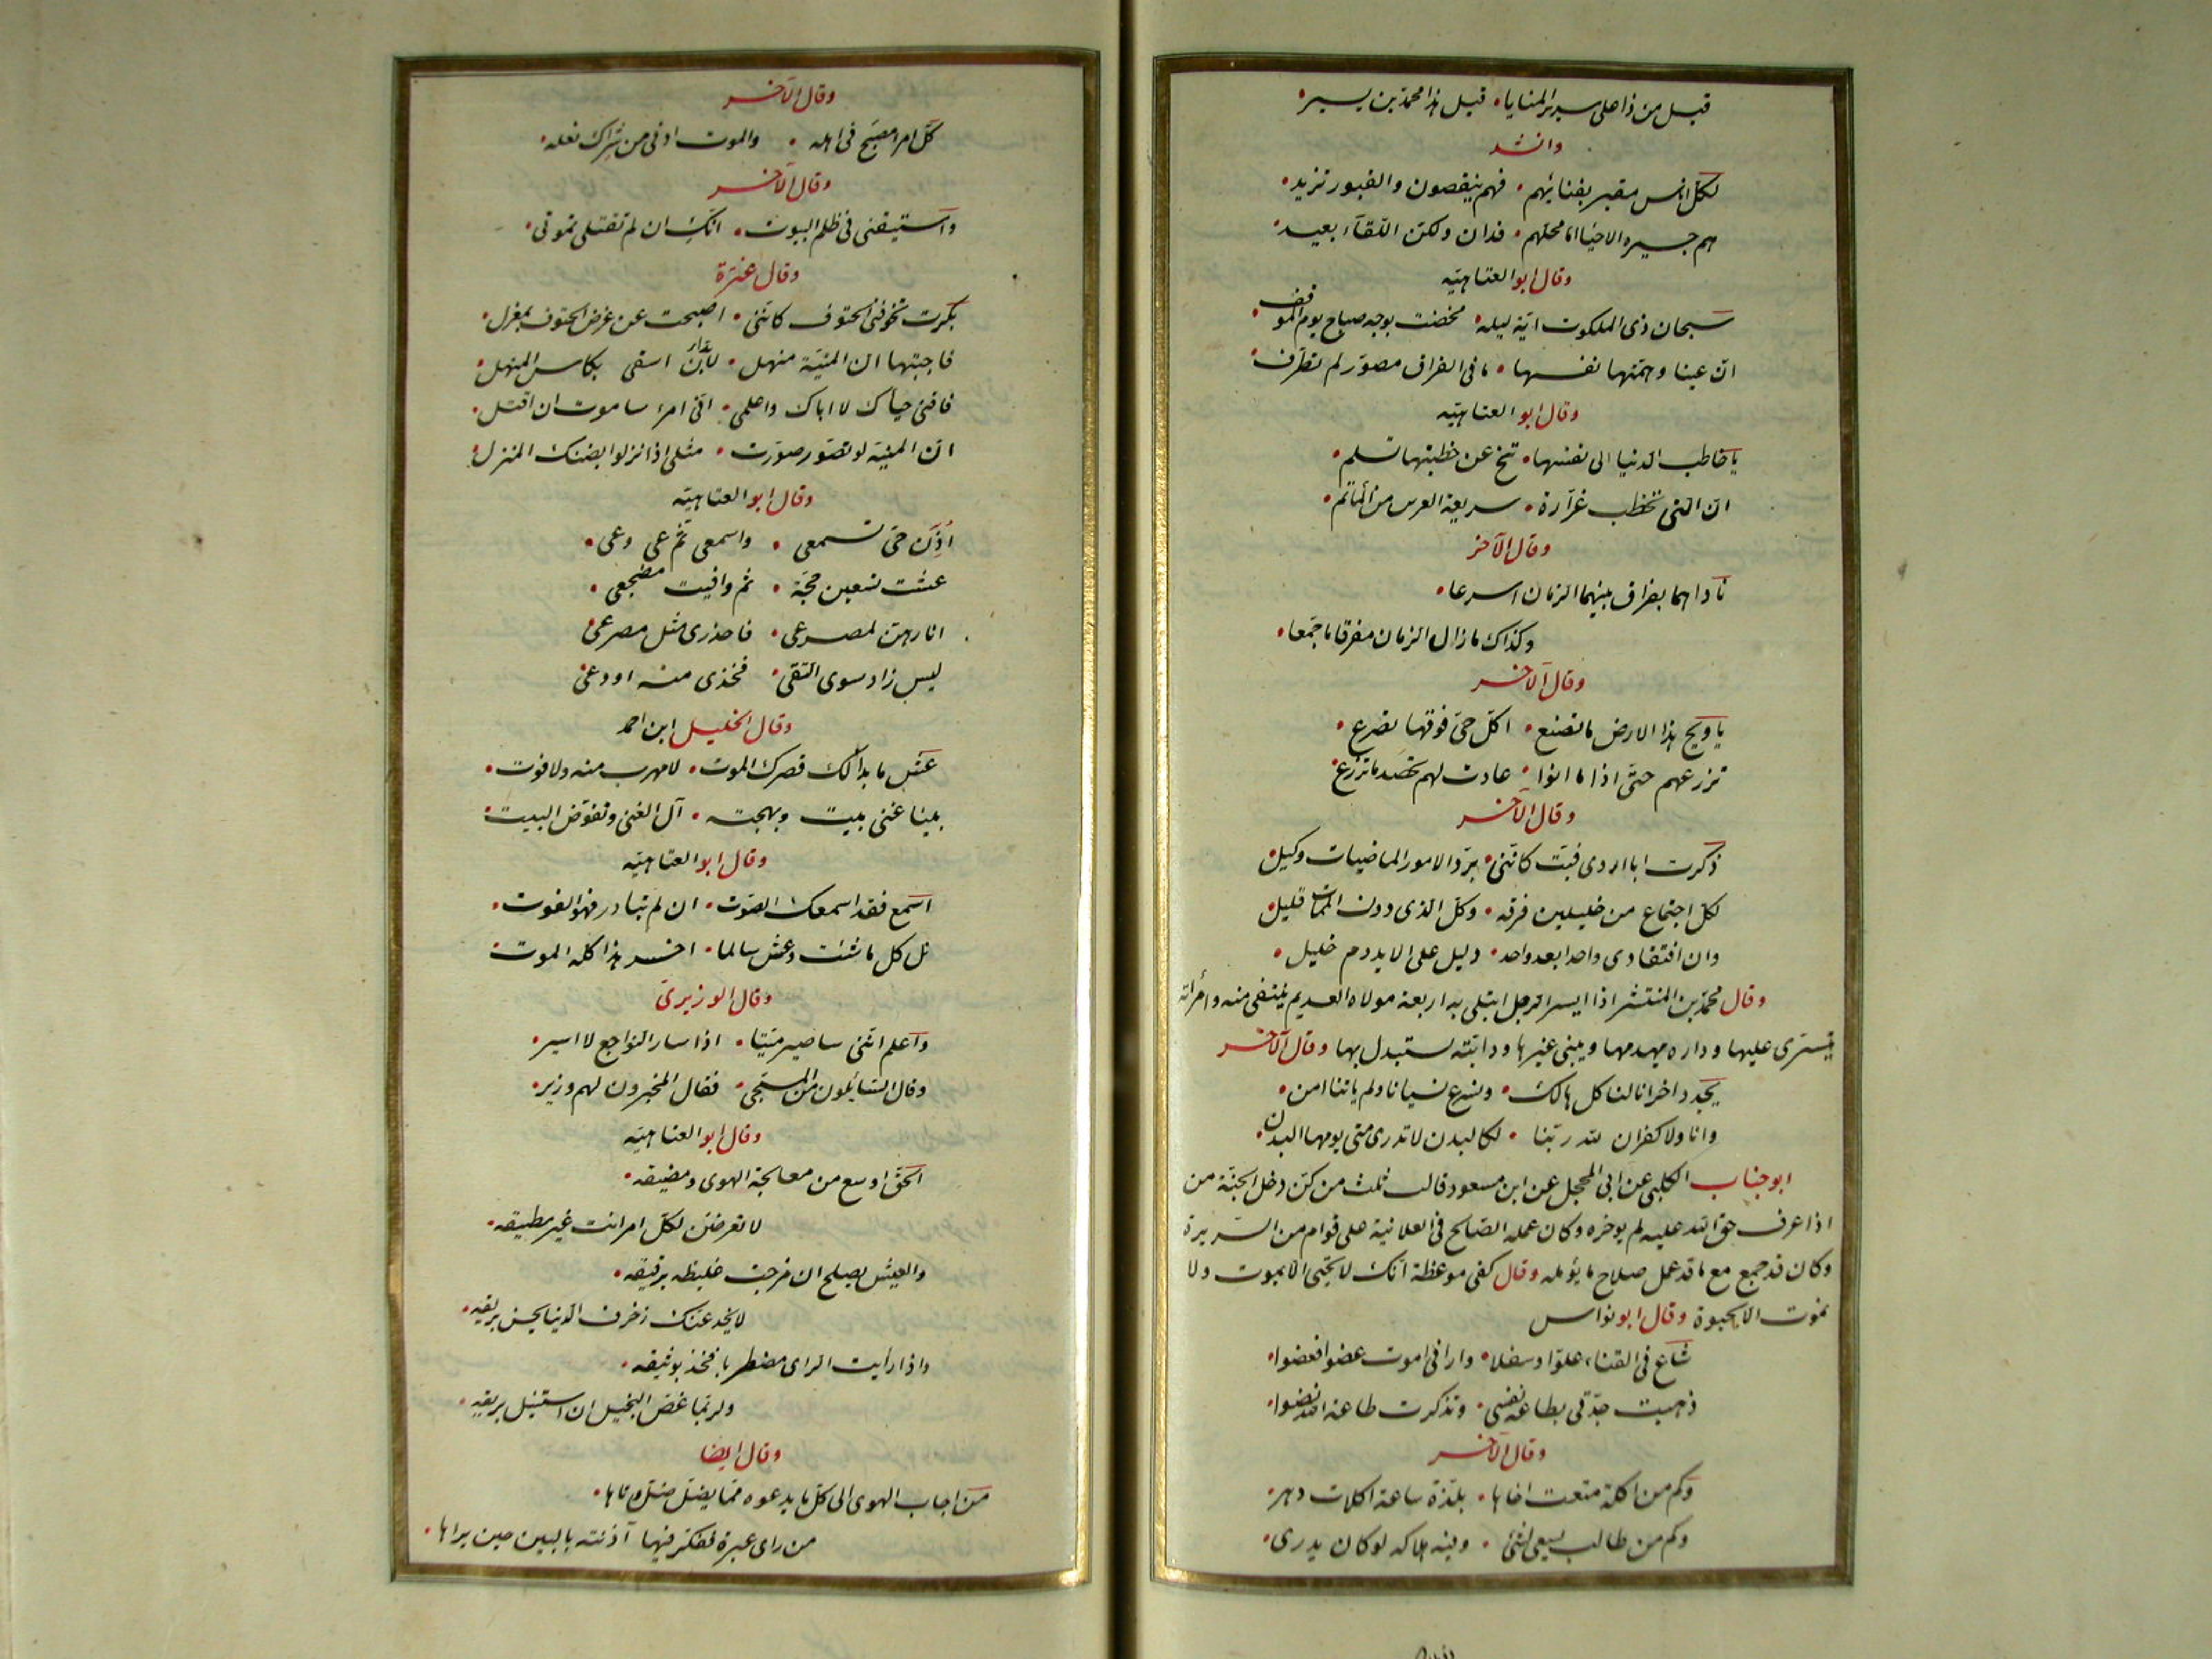 قيل من ذا على سرير المنايا • قيل هذا محمد بن يسير •
وانشد
لكل اناس مقبر بفنائهم • فهم ينقصون والقبور تزيد •
هم جيرة الاحياء اما محلهم • فدان ولكن اللقاء بعيد •
وقال ابو العتاهيّه
سبحان ذى الملكوت ايّة ليله • مخضت بوجه صباح يوم الموقف •
ان عينا وهمتها نفسها • ما فى الفراق مصوّر لم تطرف •
وقال ابو العتاهيّه
يا خاطب الدنيا الى نفسها • تنح عن خطبتها تسلم •
ان التى تخطب غرّارة • سريعة العرس من المأتم •
وقال الآخر
ناداهما بفراق بينهما الزمان اسرعا •
وكذاك ما زال الزمان مفرقا ما جمعا •
وقال الآخر
يا ويح هذا الارض ما تصنع • اكل حى فوقها تصرع •
تزرعهم حتى اذا ما اتوا • عادت لهم تحصد ما تزرع •
وقال الآخر
ذكرت ابا اروى فبتّ كانّنى • بردّ الامور الماضيات وكيل •
لكل اجتماع من خليلين فرقه • وكل الذى دون الممات قليل •
وان افتقادى واحدا بعد واحد • دليل على الا يدوم خليل •
وقال محمد بن المنتشر اذا ايسر الرجل ابتلى به اربعة مولاه القديم ينتفى منه وامرأته
يتسرى عليها وداره يهدمها ويبنى غيرها ودابّته يستبدل بها وقال الآخر
يجدد احزانا لنا كل هالك • ونسرع نسيانا ولم ياتنا امن •
وانا ولا كفران لله ربّنا • لكالبدن لا تدرى متى يومها البدن •
ابو جناب الكلبى عن ابى المحجل عن ابن مسعود قال ثلث من كن دخل الجنّة من
اذا عرف حق الله عليه لم يوخره وكان عمله الصالح فى العلانية على قوام من السريرة
وكان قد جمع مع ما قد عمل صلاح ما يؤمله وقال كفى موعظة انك لا تحيى الا بموت ولا
تموت الا بحيوة وقال ابو نواس
شاع فى الفناء علوا وسفلا • وارانى اموت عضوا فعضوا •
ذهبت جدّتى بطاعة نفسى • وتذكرت طاعة الله نضوا •
وقال الآخر
وكم من اكلة منعت اخاها • بلذة ساعة اكلات دهر •
وكم من طالب يسعى لشئ • وفيه هلاكه لو كان يدرى •
وقال الآخر
كل امرء مصبّح فى اهله • والموت ادنى من شراك نعله •
وقال الآخر
واستيقنى فى ظلم البيوت • انّك ان لم تقتلى تموتى •
وقال عنترة
بكرت تخوفنى الحتوف كانّنى • اصبحت عن غرض الحتوف بمعزل •
فاجبتها ان المنيّة منهل • لا بدّ ان اسقى بكاس المنهل •
فاقنى حياك لا ابا لك واعلمى • انّى امرء ساموت ان لم اقتل •
ان المنيه لو تصور صوّرت • مثلى اذا نزلوا بضنك المنزل •
وقال ابو العتاهيّه
اذن حى تسمعى • واسمعى ثم عى وعى •
عشت تسعين حجّة • ثم وافيت مضجعى •
انا رهن لمصرعى • فاحذرى مثل مصرعى •
ليس زاد سوى التقى • فخذى منه اودعى •
وقال الخليل ابن احمد
عش ما بدا لك قصرك الموت • لا مهرب منه ولا فوت •
بينا غنى بيت وبهجته • آل الغنى وتقوّض البيت •
وقال ابو العتاهيّه
اسمع فقد اسمعك الصوت • ان لم تبادر فهو الفوت •
نل كل ما شئت وعش سالما • اخر هذا كله الموت •
وقال الوزيرىّ
واعلم انّنى ساصير ميّتا • اذا سار النواجع لا اسير •
وقال السايلون من المسجّى • فقال المخبرون لهم وزير •
وقال ابو العتاهيّه
الحق اوسع من معالجة الهوى ومضيقه •
لا تعرضن لكل امر انت غير مطيقه •
والعيش يصلح ان مزجت غليظه برقيقه •
لا يخدعنك زخرف الدنيا بحسن بريقه •
واذا رأيت الراى مضطربا فخذ بوثيقه •
ولربما غصّ البخيل ان استنيل بريقه •
وقال ايضا
من اجاب الهوى الى كل ما يدعوه مما يضل ضل وتاها •
من راى عبرة ففكر فيها آذنته بالبين حين يراها •